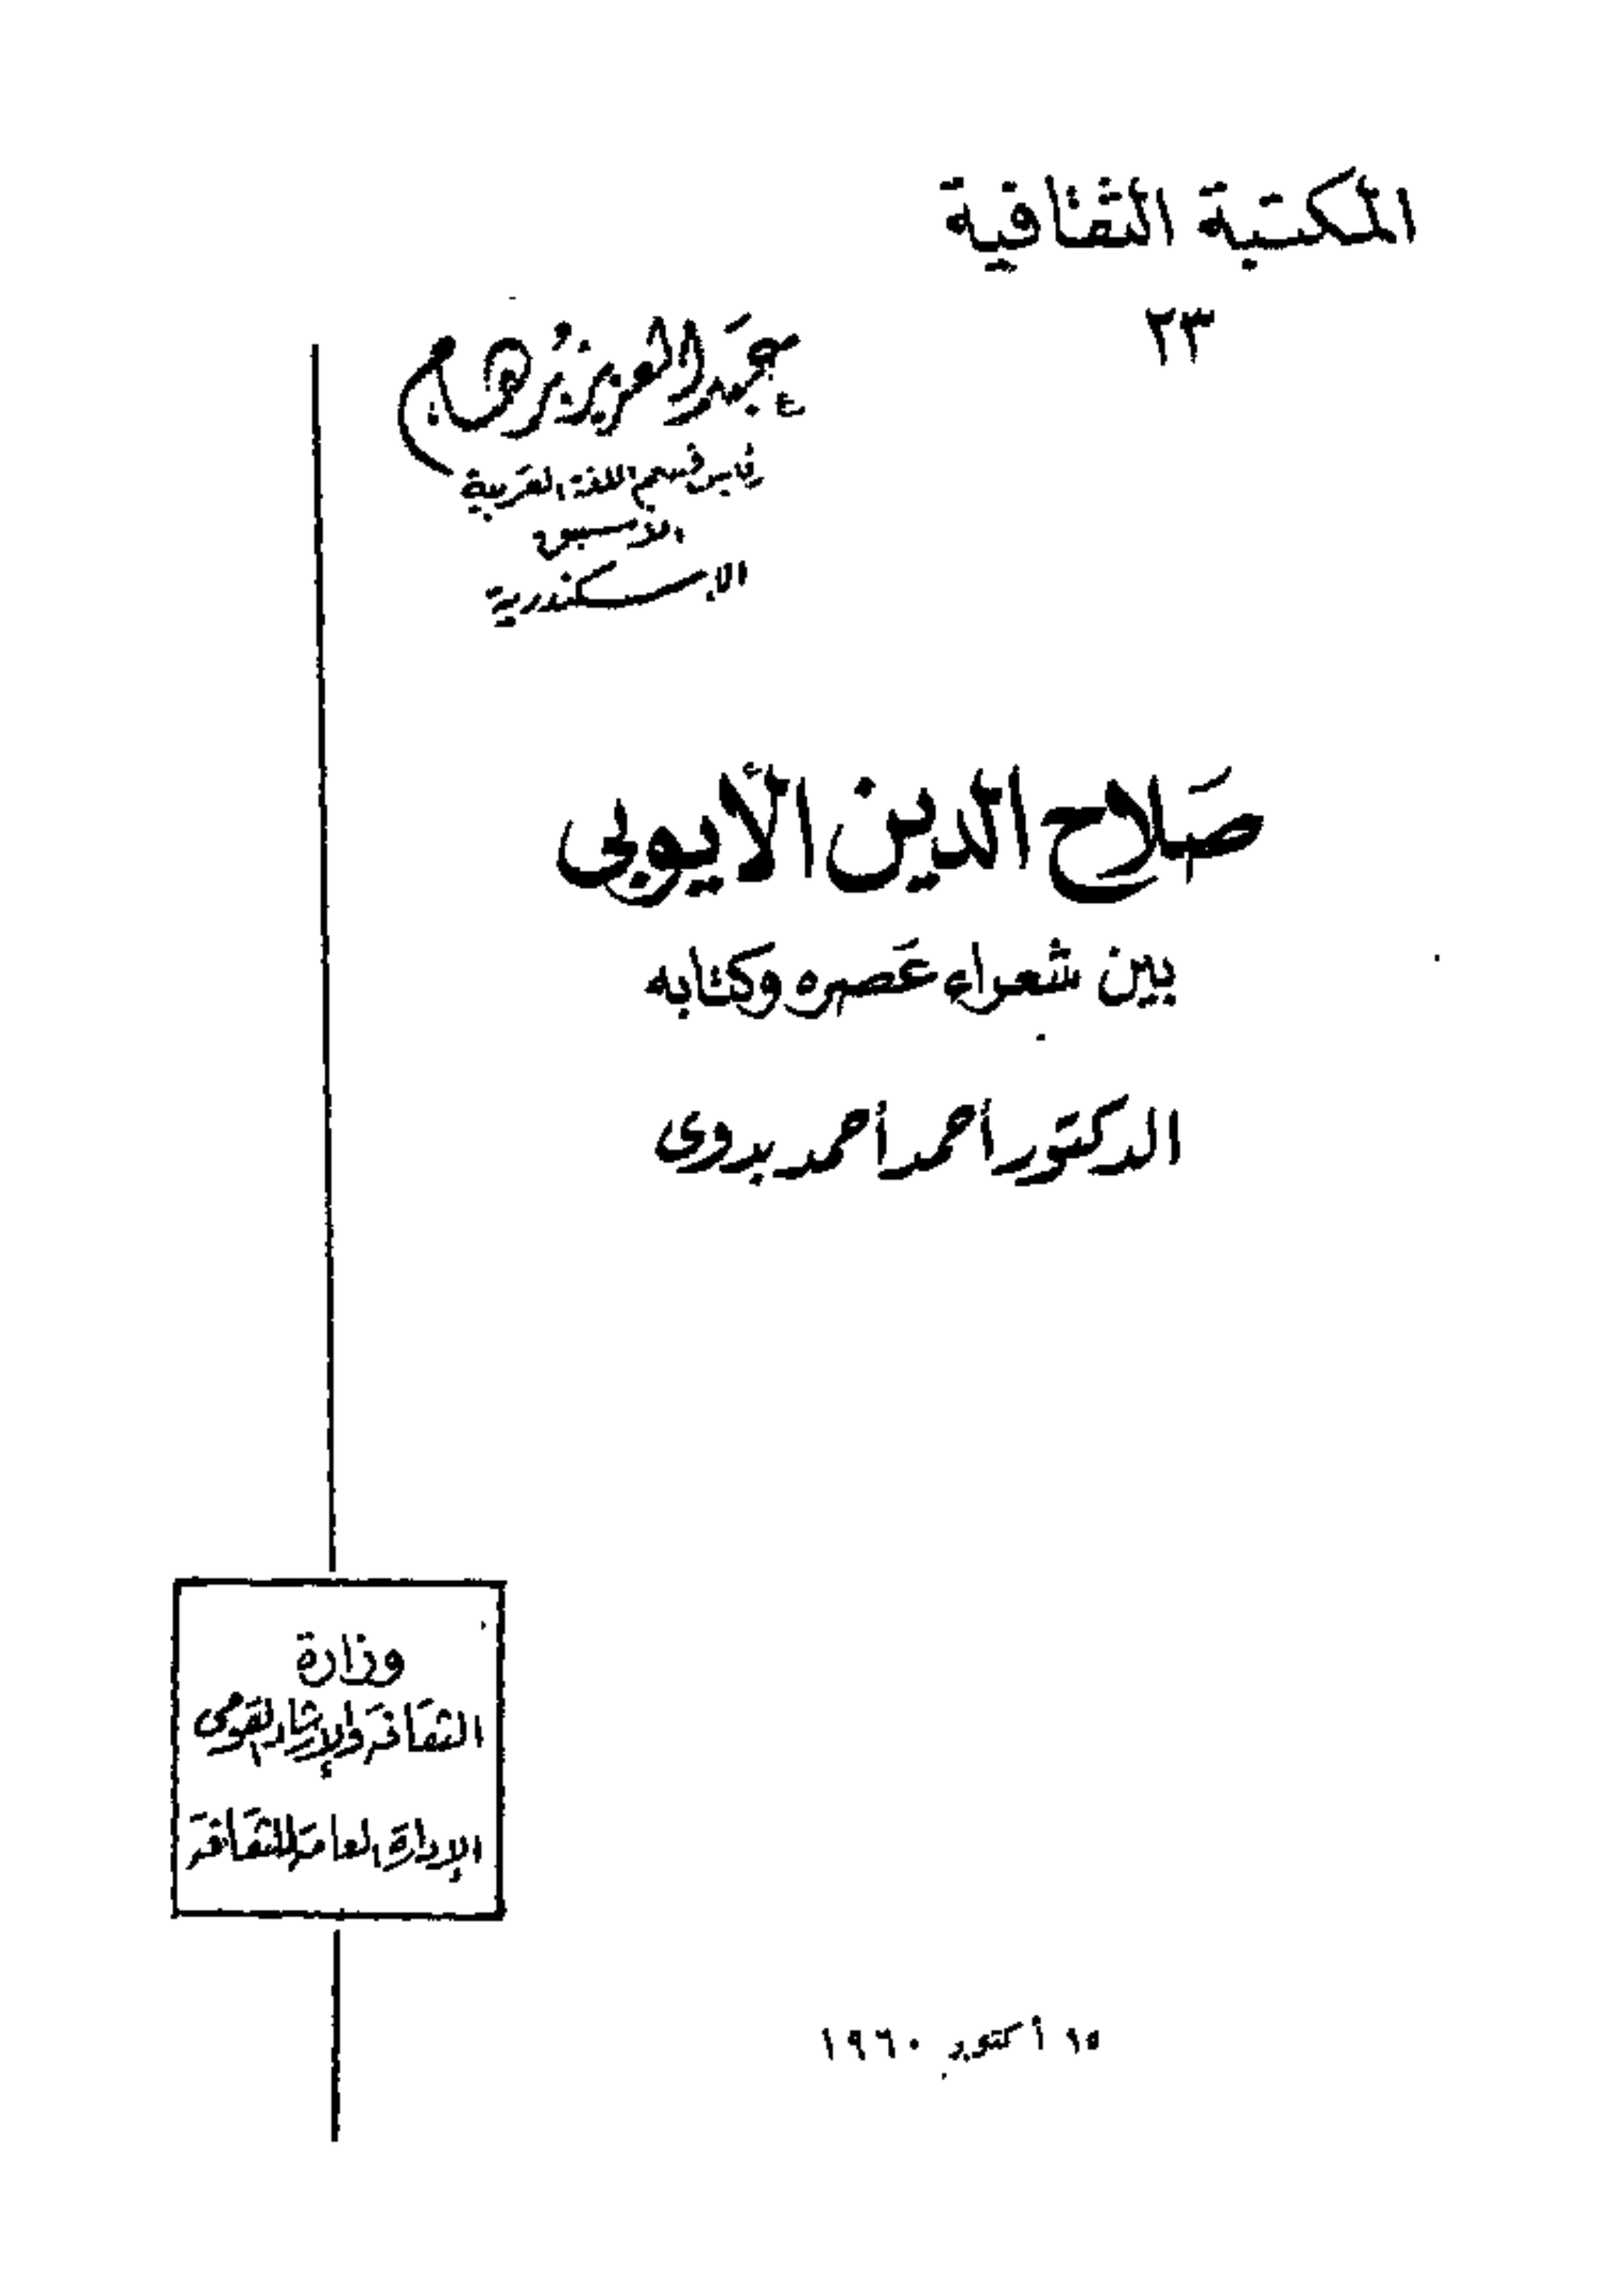 المكتبة الثقافية
٢٣
عبد العزيز
قسم اللغة العربية
الإسكندرية
صَلاح الدين الأيوبى
بين شعراء عَصره وكتابه
الدكتور أحمد أحمد بدوى
وزارة
الثقافة والإرشاد القومى
الإدارة العامة للثقافة
١٥ أكتوبر ١٩٦٠